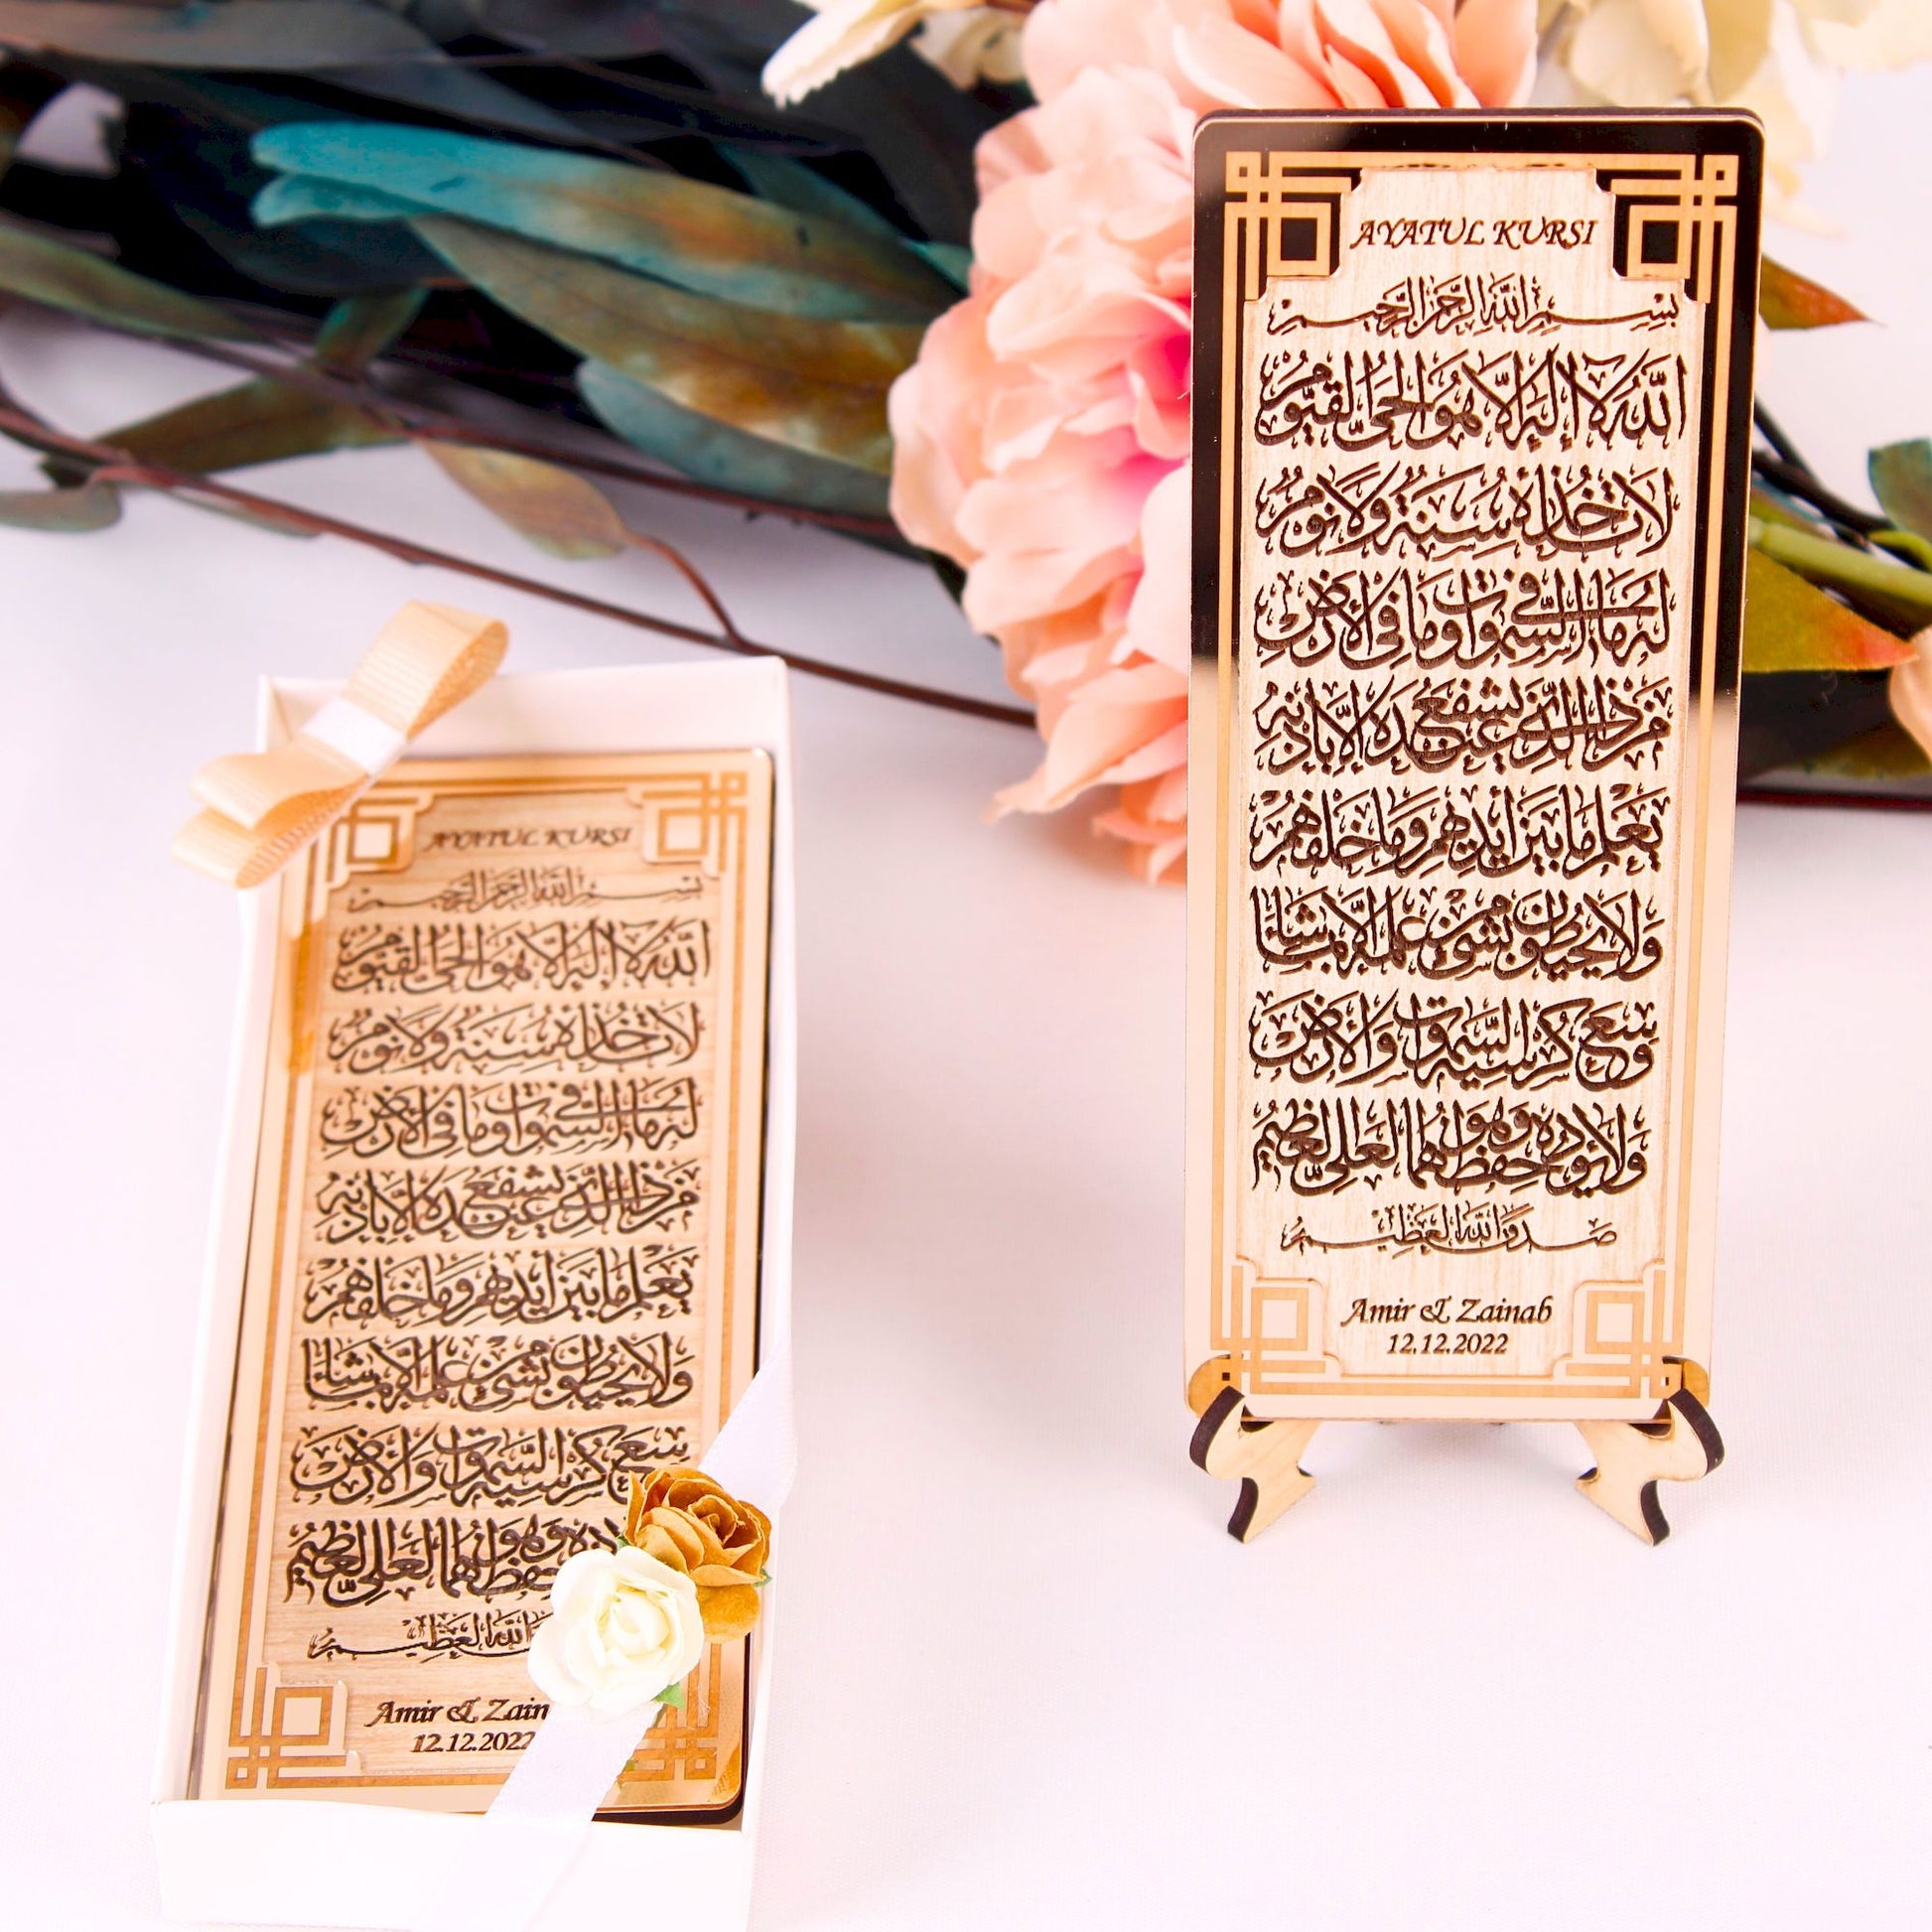 AYATUL KURSI
بِسْمِ اللهِ الرَّحْمٰنِ الرَّحِيْمِ
اَللّٰهُ لَآ اِلٰهَ اِلَّا هُوَ الْحَىُّ الْقَيُّوْمُ
لَا تَأْخُذُهُ سِنَةٌ وَلَا نَوْمٌ
لَهُ مَا فِى السَّمٰوَاتِ وَمَا فِى الْاَرْضِ
مَنْ ذَا الَّذِى يَشْفَعُ عِنْدَهُ اِلَّا بِاِذْنِهِ
يَعْلَمُ مَا بَيْنَ اَيْدِيهِمْ وَمَا خَلْفَهُمْ
وَلَا يُحِيطُونَ بِشَىْءٍ مِنْ عِلْمِهِ اِلَّا بِمَا شَاءَ
وَسِعَ كُرْسِيُّهُ السَّمٰوَاتِ وَالْاَرْضَ
وَلَا يَؤُدُهُ حِفْظُهُمَا وَهُوَ الْعَلِىُّ الْعَظِيمُ
صَدَقَ اللهُ الْعَظِيْمُ
Amir & Zainab
12.12.2022
AYATUL KURSI
بِسْمِ اللهِ الرَّحْمٰنِ الرَّحِيْمِ
اَللّٰهُ لَآ اِلٰهَ اِلَّا هُوَ الْحَىُّ الْقَيُّوْمُ
لَا تَأْخُذُهُ سِنَةٌ وَلَا نَوْمٌ
لَهُ مَا فِى السَّمٰوَاتِ وَمَا فِى الْاَرْضِ
مَنْ ذَا الَّذِى يَشْفَعُ عِنْدَهُ اِلَّا بِاِذْنِهِ
يَعْلَمُ مَا بَيْنَ اَيْدِيهِمْ وَمَا خَلْفَهُمْ
وَلَا يُحِيطُونَ بِشَىْءٍ مِنْ عِلْمِهِ اِلَّا بِمَا شَاءَ
وَسِعَ كُرْسِيُّهُ السَّمٰوَاتِ وَالْاَرْضَ
حِفْظُهُمَا وَهُوَ الْعَلِىُّ الْعَظِيمُ
اللهُ الْعَظِيْمُ
Amir & Zain
12.12.2022